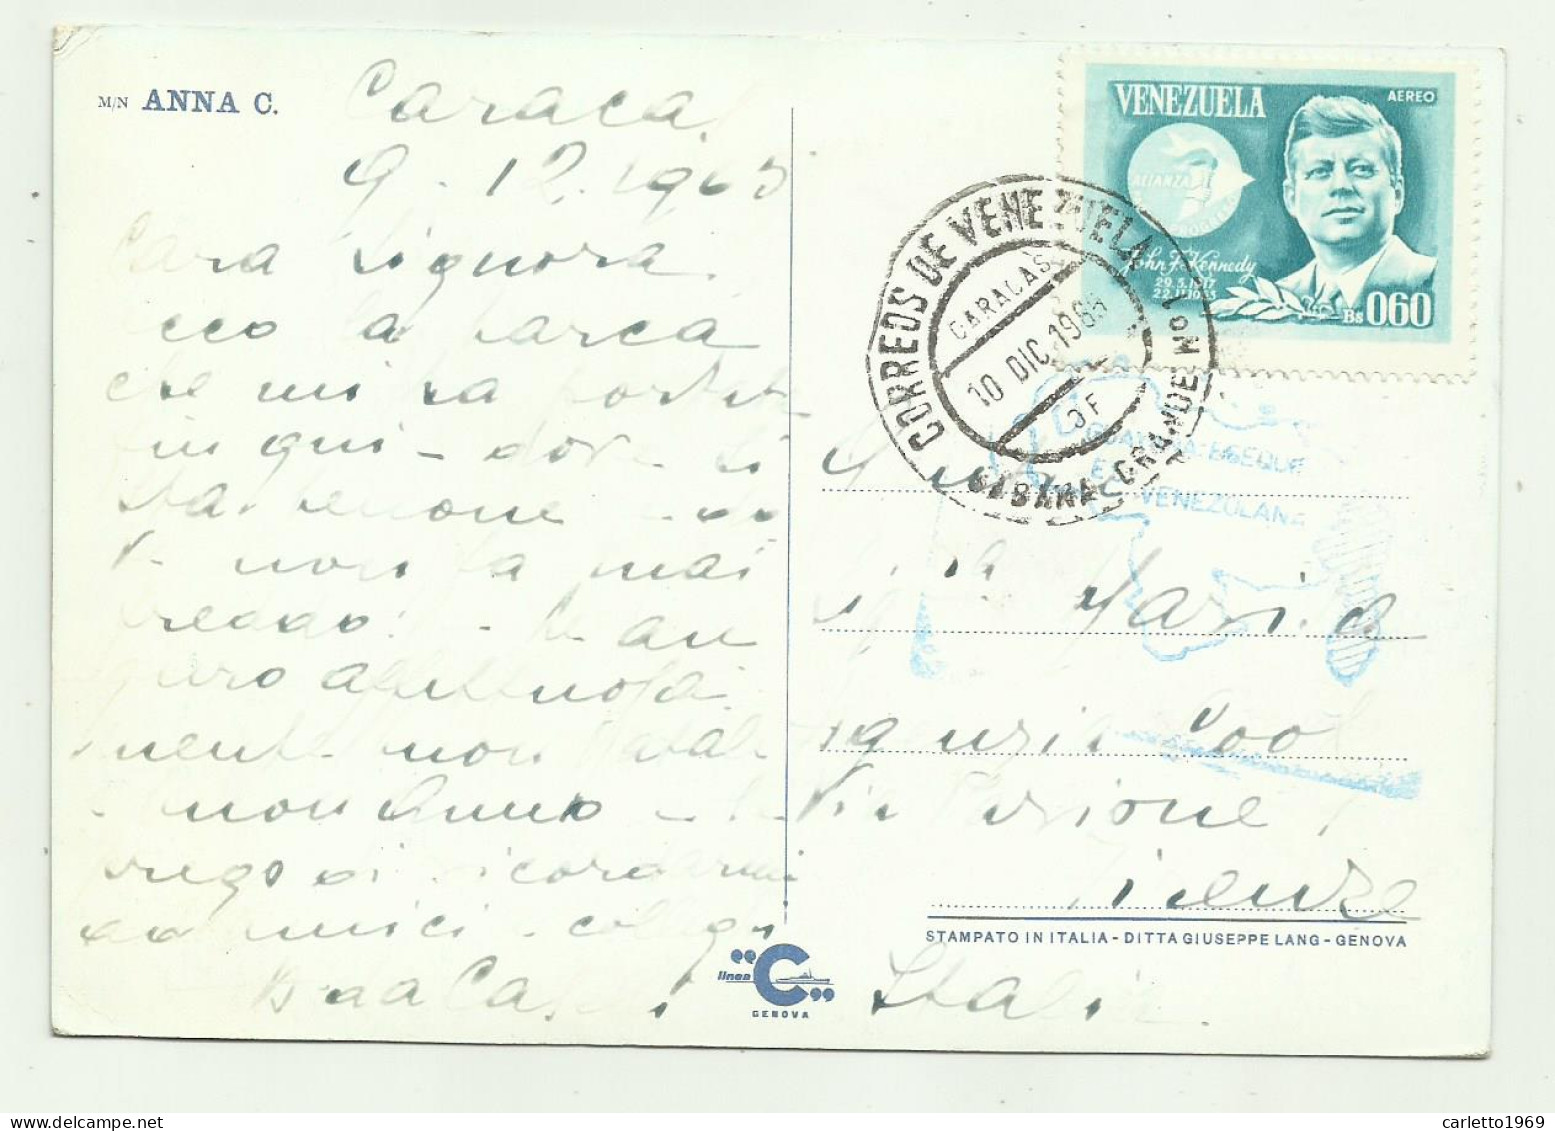 M/N ANNA C.
Caracas
9-12.1965
Cara Signora
ecco la barca
che mi ha portata
fin qui - dove si
sta benone e do
V- non la mai
Le au
guro affettuosa
mente buon Natale
- buon Anno - La
prego di ricordarmi
amici colleghi
VENEZUELA
AEREO
ALIANZA
PROGRESO
John F. Kennedy
29.5.1917
22.11.1963
Bs 0,60
CORREOS DE VENEZUELA
CARACAS
10 DIC. 1965
D F
SABANA GRANDE No 1
GUAYANA ESEQUIBA
ES VENEZOLANA
Maria
Agenzia
Via
Firenze
Italia
STAMPATO IN ITALIA - DITTA GIUSEPPE LANG - GENOVA
linea "C"
GENOVA
carletto1969